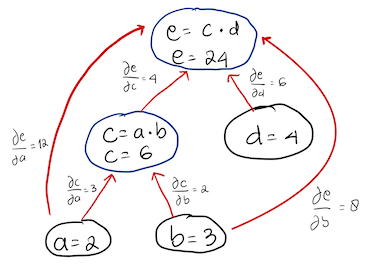 e = c · d
e = 24
∂e/∂c = 4
∂e/∂d = 6
∂e/∂a = 12
c = a · b
c = 6
d = 4
∂c/∂a = 3
∂c/∂b = 2
∂e/∂b = 8
a = 2
b = 3